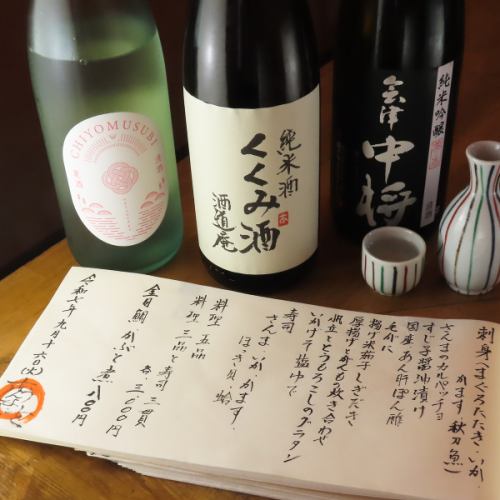 CHIYOMUSUBI
純米酒
くくみ酒
酒道庵
純米吟醸
会津
中将
刺身(まぐろたたき・いか・
かます 秋刀魚)
さんまのカルパッチョ
すじ子醤油漬け
国産あん肝ぽん酢
毛がに
揚げ米茄子しぎだき
厚揚げと 炊き合わせ
帆立ととうもろこしのグラタン
いかげそ塩ゆで
寿司
さんま・いか・かます・
ほっき貝・蛤
料理 五品
料理 三品と寿司 三貫
各、三、〇〇〇円
金目鯛かぶと煮 八〇〇円
令和七年九月十六日(火)